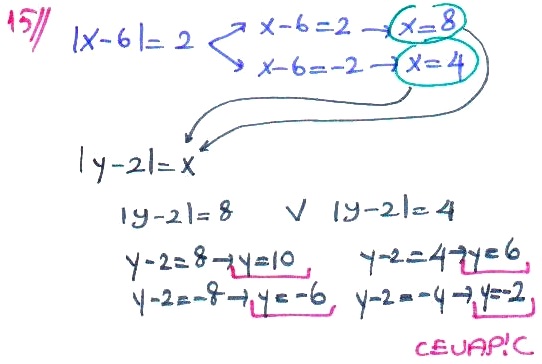 15// |x-6|=2 x-6=2 → x=8
x-6=-2 → x=4
|y-2|=x
|y-2|=8 ∨ |y-2|=4
y-2=8 → y=10 y-2=4 → y=6
y-2=-8 → y=-6 y-2=-4 → y=-2
CEVAP:C